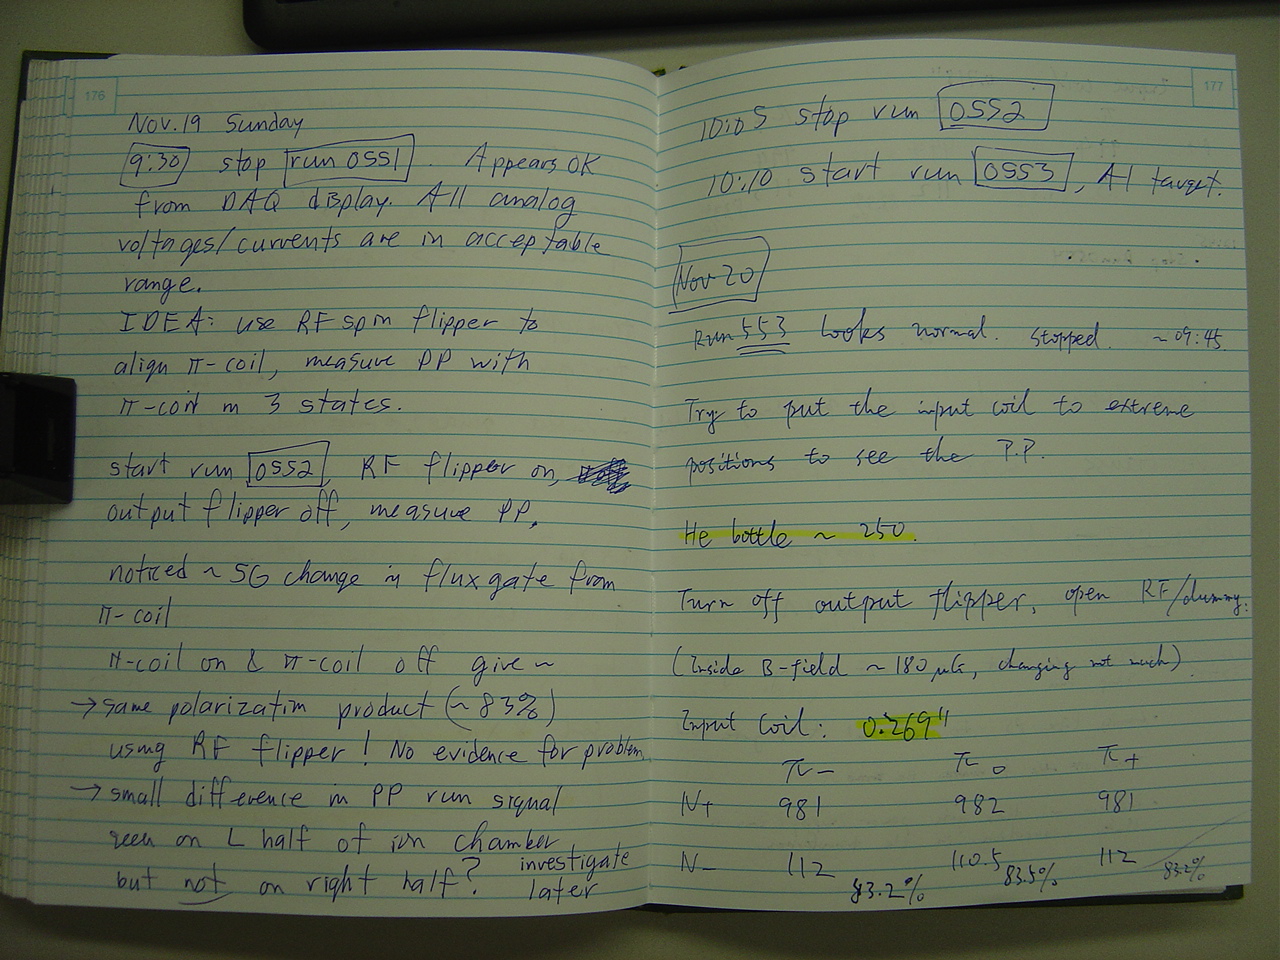 176
Nov. 19 Sunday
9:30 stop run 0551. Appears OK
from DAQ display. All analog
voltages/currents are in acceptable
range.
IDEA: use RF spin flipper to
align π-coil, measure PP with
π-coil in 3 states.
start run 0552, RF flipper on,
output flipper off, measure PP.
noticed ~ 5G change in flux gate from
π-coil
π-coil on & π-coil off give ~
→ same polarization product (~83%)
using RF flipper! No evidence for problem
→ small difference in PP run signal
seen on L half of ion chamber
but not on right half? investigate
later
177
10:05 stop run 0552
10:10 start run 0553, Al target.
Nov 20
Run 553 looks normal. stopped. ~09:45
Try to put the input coil to extreme
positions to see the P.P.
He bottle ~ 250.
Turn off output flipper, open RF/dummy.
(Inside B-field ~ 180 μG, changing not much)
Input coil: 0.269"
π- π0 π+
N+ 981 982 981
N- 112 110.5 112
83.2% 83.5% 83.2%